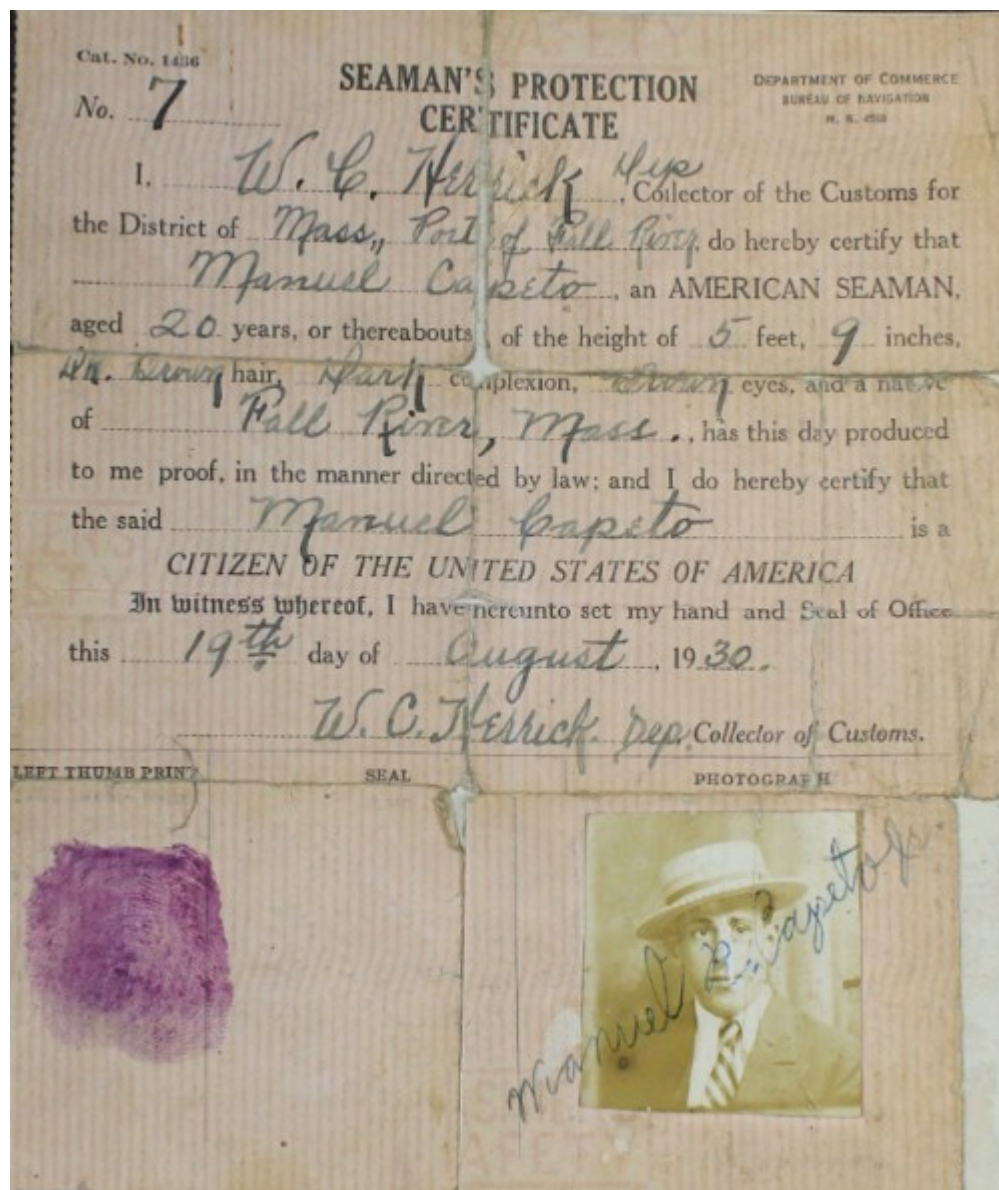 Cat. No. 1436
No. 7
SEAMAN'S PROTECTION
CERTIFICATE
DEPARTMENT OF COMMERCE
BUREAU OF NAVIGATION
I, W. C. Herrick Dep, Collector of the Customs for
the District of Mass., Port of Fall River, do hereby certify that
Manuel Capeto, an AMERICAN SEAMAN,
aged 20 years, or thereabouts, of the height of 5 feet, 9 inches,
Dk. Brown hair, Dark complexion, Brown eyes, and a native
of Fall River, Mass., has this day produced
to me proof, in the manner directed by law; and I do hereby certify that
the said Manuel Capeto is a
CITIZEN OF THE UNITED STATES OF AMERICA
In witness whereof, I have hereunto set my hand and Seal of Office
this 19th day of August, 1930.
W. C. Herrick. Dep. Collector of Customs.
LEFT THUMB PRINT
SEAL
PHOTOGRAPH
Manuel R. Capeto Jr.